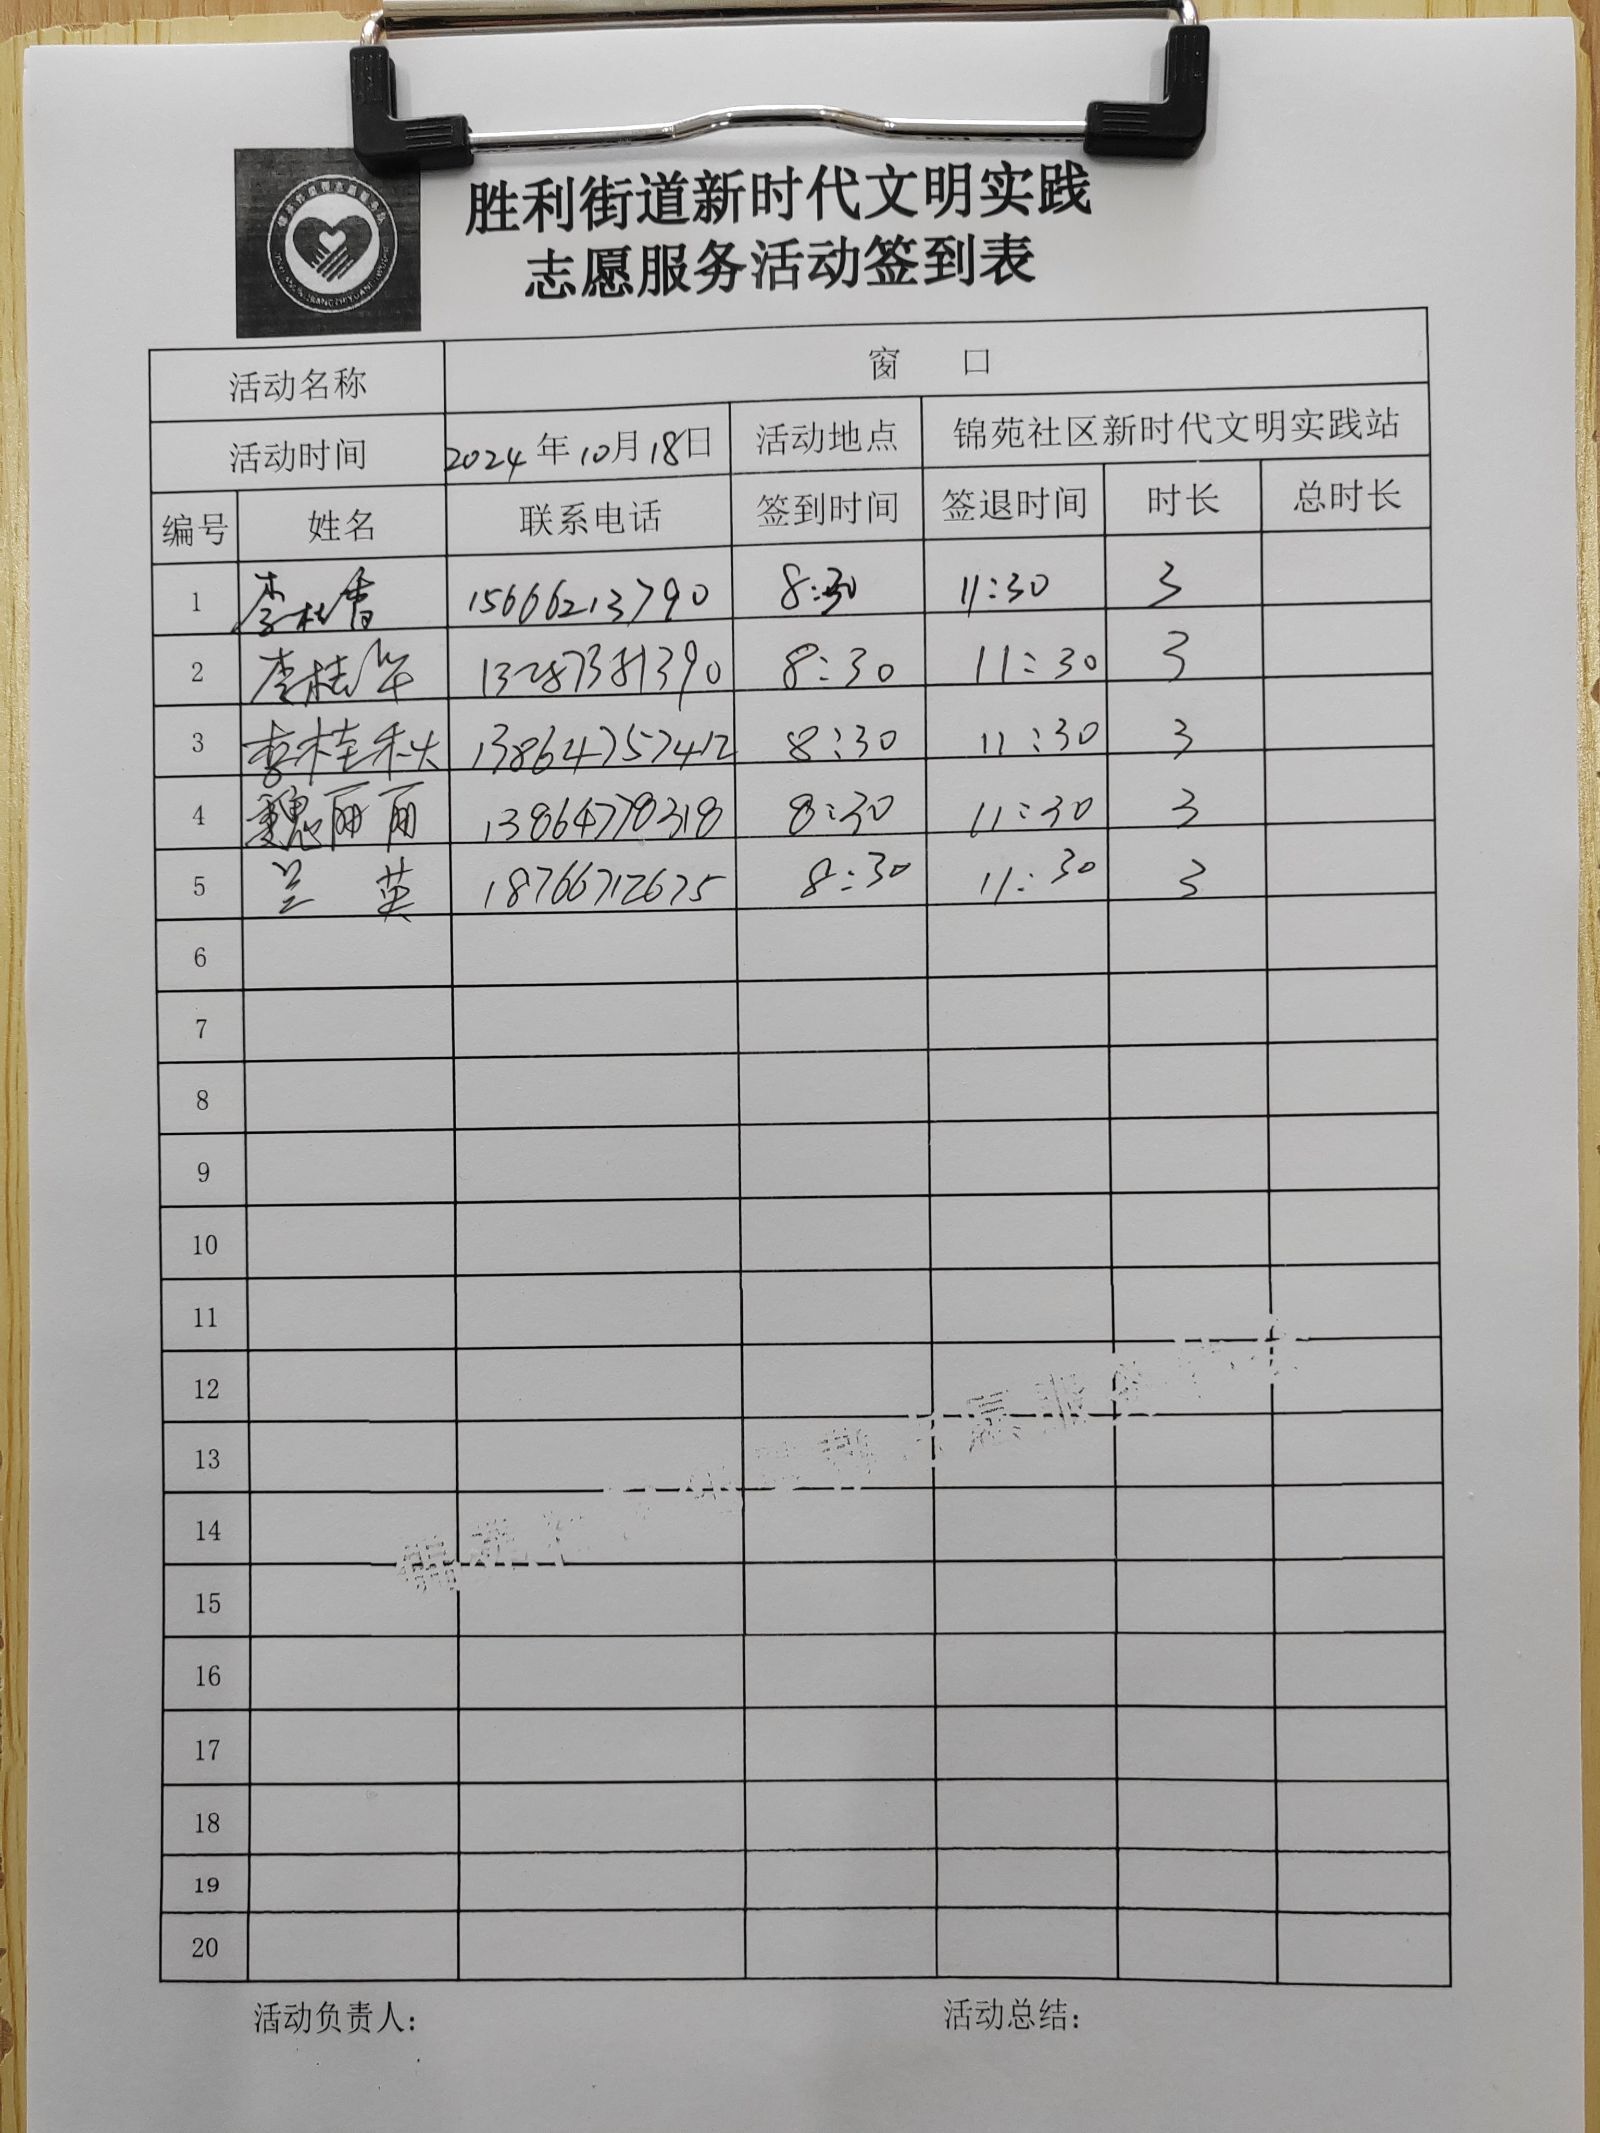 胜利街道新时代文明实践
志愿服务活动签到表
活动名称 窗 口
活动时间 2024年10月18日 活动地点 锦苑社区新时代文明实践站
编号 姓名 联系电话 签到时间 签退时间 时长 总时长
1 李桂香 15666213790 8:30 11:30 3
2 李桂华 13287381390 8:30 11:30 3
3 李桂秋 13864757412 8:30 11:30 3
4 魏丽丽 13864778318 8:30 11:30 3
5 兰英 18766712675 8:30 11:30 3
6
7
8
9
10
11
12
13
14
15
16
17
18
19
20
活动负责人: 活动总结: